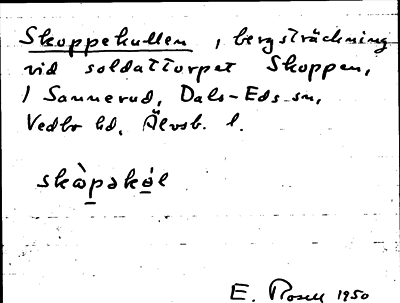 Skoppekullen, bergsträckning
vid soldattorpet Skoppen,
1 Sannerud, Dals-Eds sn,
Vedbo hd, Älvsb. l.
skàpəkəl
E. Rosell 1950